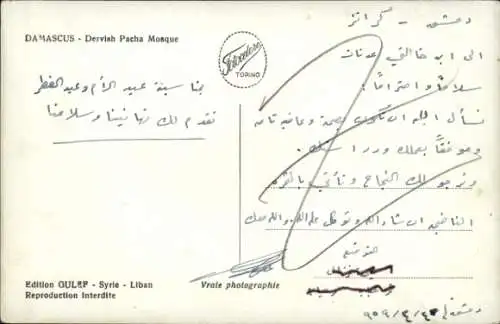 DAMASCUS - Dervish Pacha Mosque
Fotocelere
TORINO
بمناسبة عيد الأم وعيد الفطر
نقدم لك تهانينا وسلامنا
دمشق -
الى ابن خالتي عدنان
سلاماً واحتراماً:
نسأل الله ان تكون بصحة وعافية تامة
وموفقاً بعملك ودراستك.
ونرجو لك النجاح وتأتي بالثمرة
ان شاء الله وتوكل على الله والله معك
التوقيع
Edition GULEF - Syrie - Liban
Reproduction Interdite
Vraie photographie
دمشق